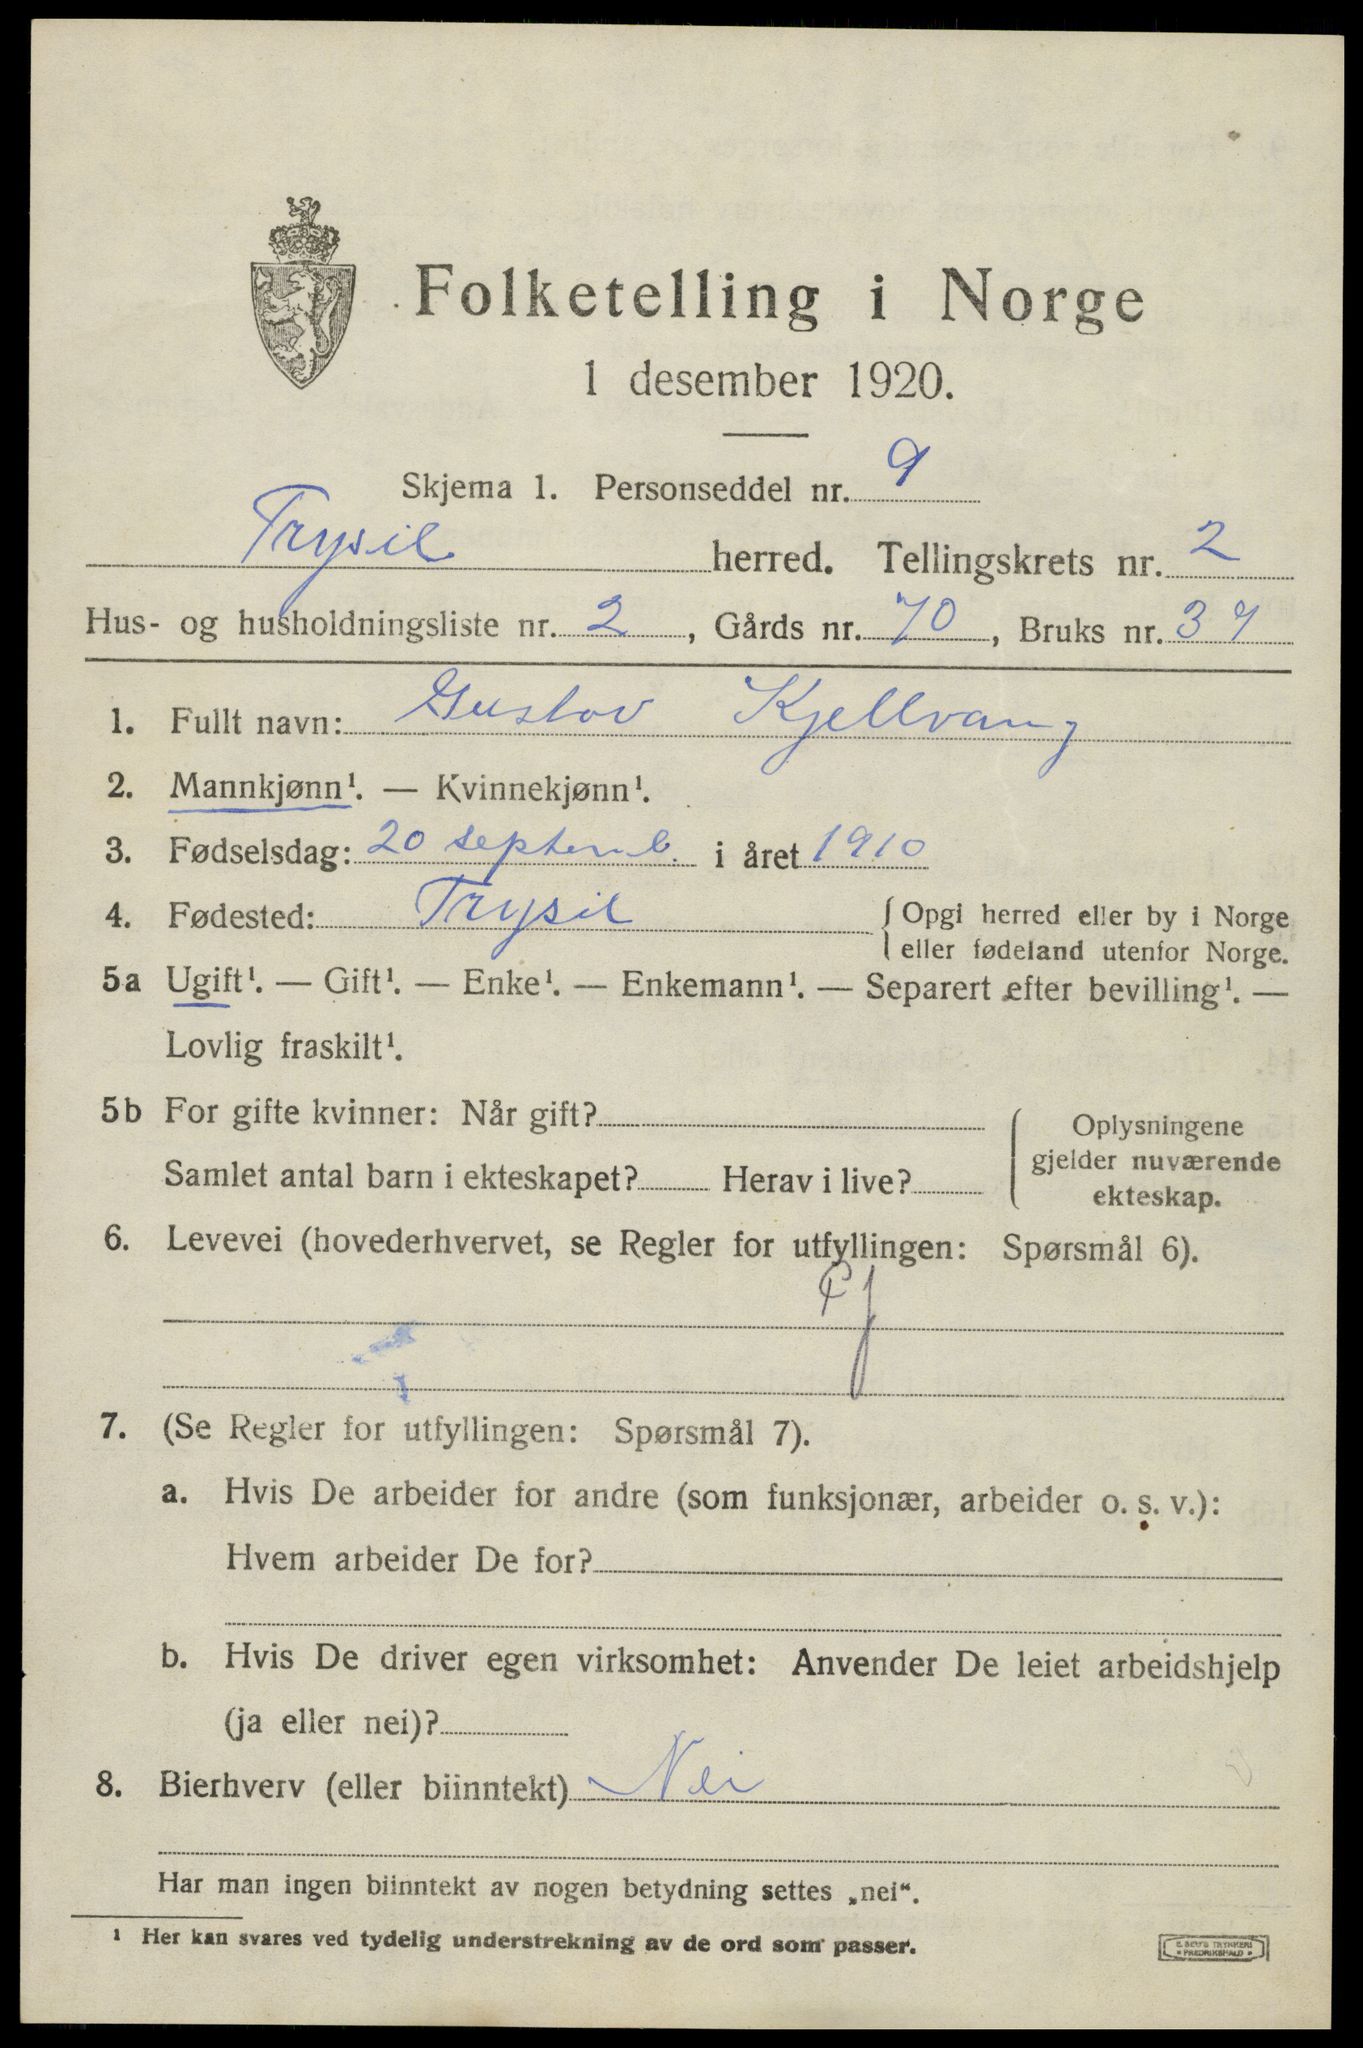 Folketelling i Norge
1 desember 1920.
Skjema 1. Personseddel nr. 9
Trysil herred. Tellingskrets nr. 2
Hus- og husholdningsliste nr. 2, Gårds nr. 70, Bruks nr. 37
1. Fullt navn: Gustov Kjellvang
2. Mannkjønn¹. — Kvinnekjønn¹.
3. Fødselsdag: 20 septemb. i året 1910
4. Fødested: Trysil {Opgi herred eller by i Norge
eller fødeland utenfor Norge.
5a Ugift¹. — Gift¹. — Enke¹. — Enkemann¹. — Separert efter bevilling¹. —
Lovlig fraskilt¹.
5b For gifte kvinner: Når gift?
Samlet antal barn i ekteskapet? Herav i live?
Oplysningene
gjelder nuværende
ekteskap.
6. Levevei (hovederhvervet, se Regler for utfyllingen: Spørsmål 6).
7. (Se Regler for utfyllingen: Spørsmål 7).
a. Hvis De arbeider for andre (som funksjonær, arbeider o. s. v.):
Hvem arbeider De for?
b. Hvis De driver egen virksomhet: Anvender De leiet arbeidshjelp
(ja eller nei)?
8. Bierhverv (eller biinntekt) Nei
Har man ingen biinntekt av nogen betydning settes „nei“.
¹ Her kan svares ved tydelig understrekning av de ord som passer.
E. SEM'S TRYKKERI
• FREDRIKSHALD •